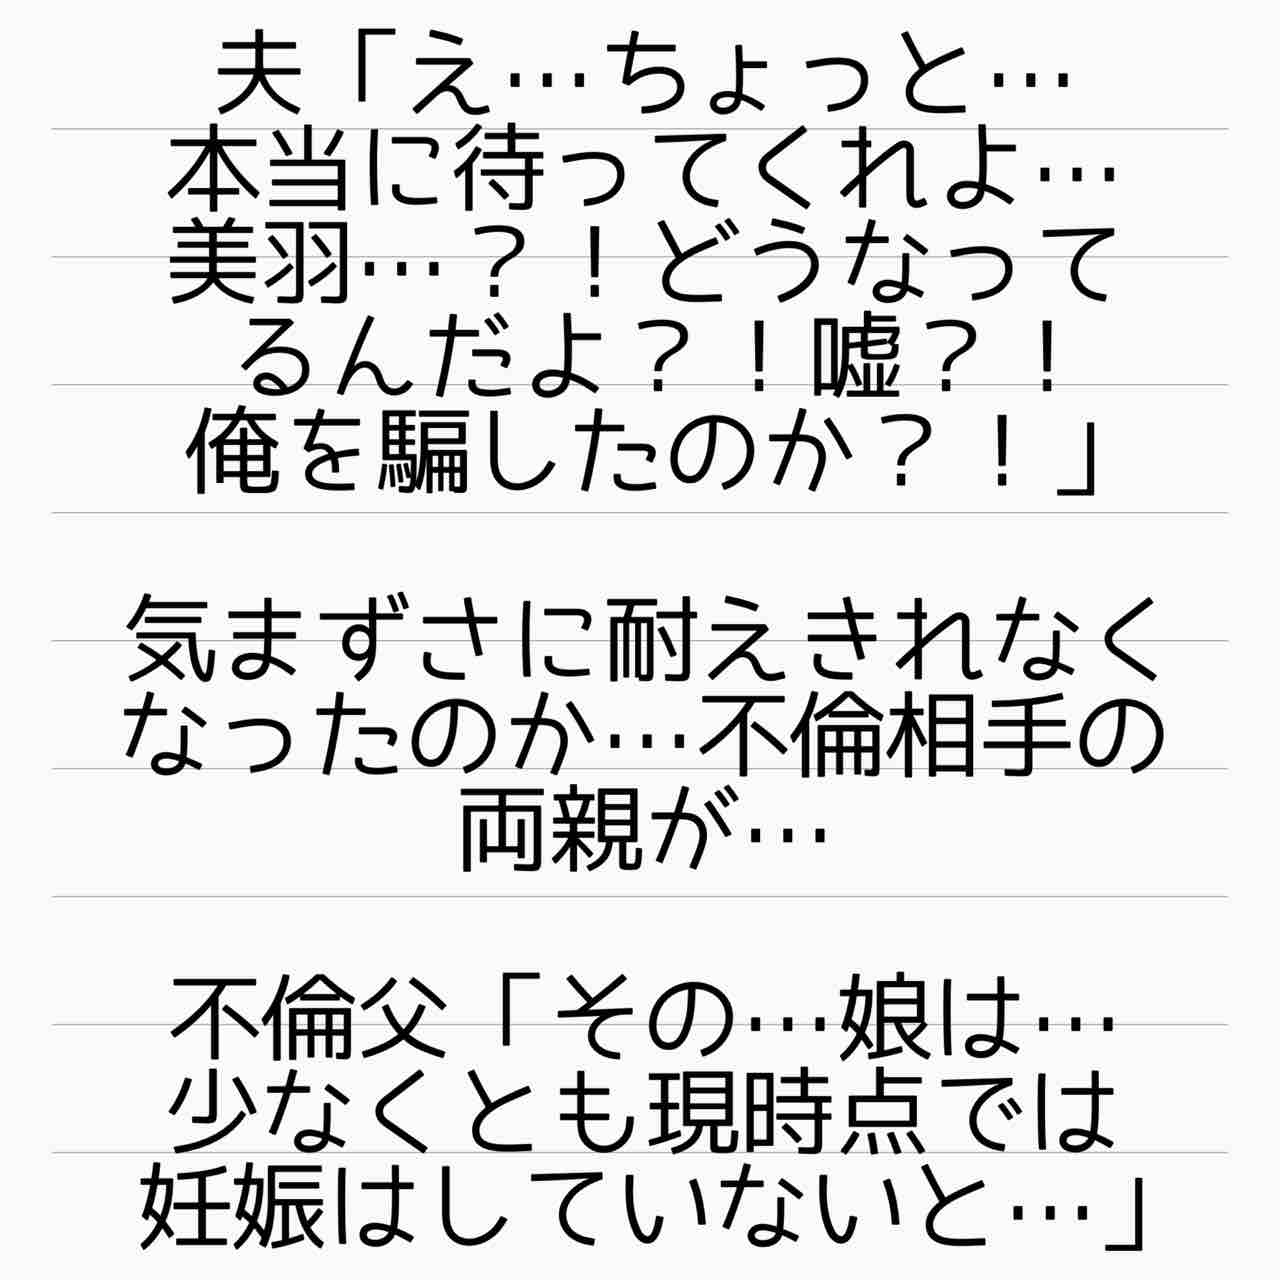 夫「え…ちょっと…
本当に待ってくれよ…
美羽…？！どうなって
るんだよ？！嘘？！
俺を騙したのか？！」
気まずさに耐えきれなく
なったのか…不倫相手の
両親が…
不倫父「その…娘は…
少なくとも現時点では
妊娠はしていないと…」